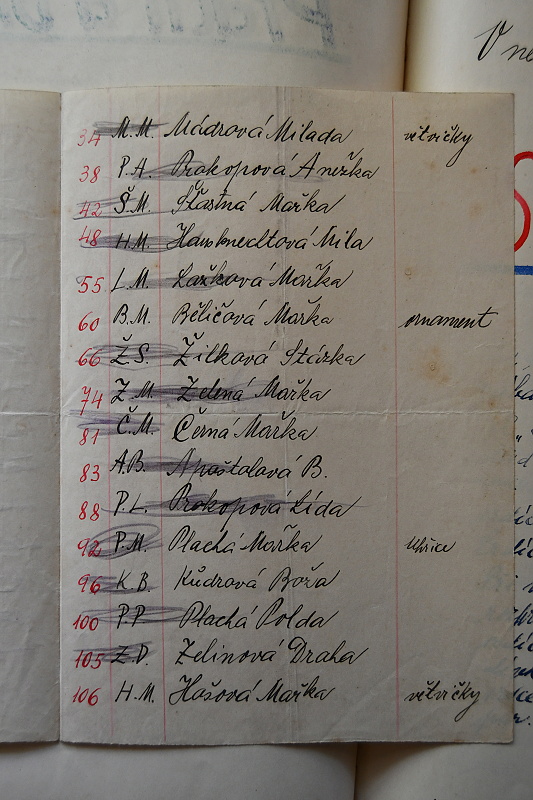 V ne
34 M.M. Mádrová Milada větvičky
38 P.A. Prokopová Anežka
42 Š.M. Šťastná Mařka
48 H.M. Hamknechtová Mila
55 L.M. Lažková Mařka
60 B.M. Běličová Mařka ornament
66 Ž.S. Žilková Stázka
74 Z.M. Zelená Mařka
81 Č.M. Černá Mařka
83 A.B. Apoštolová B.
88 P.L. Prokopová Lída
92 P.M. Plachá Mařka Uhřice
96 K.B. Kudrová Boža
100 P.P. Plachá Polda
105 Z.D. Zelinová Draha
106 H.M. Hošová Mařka větvičky